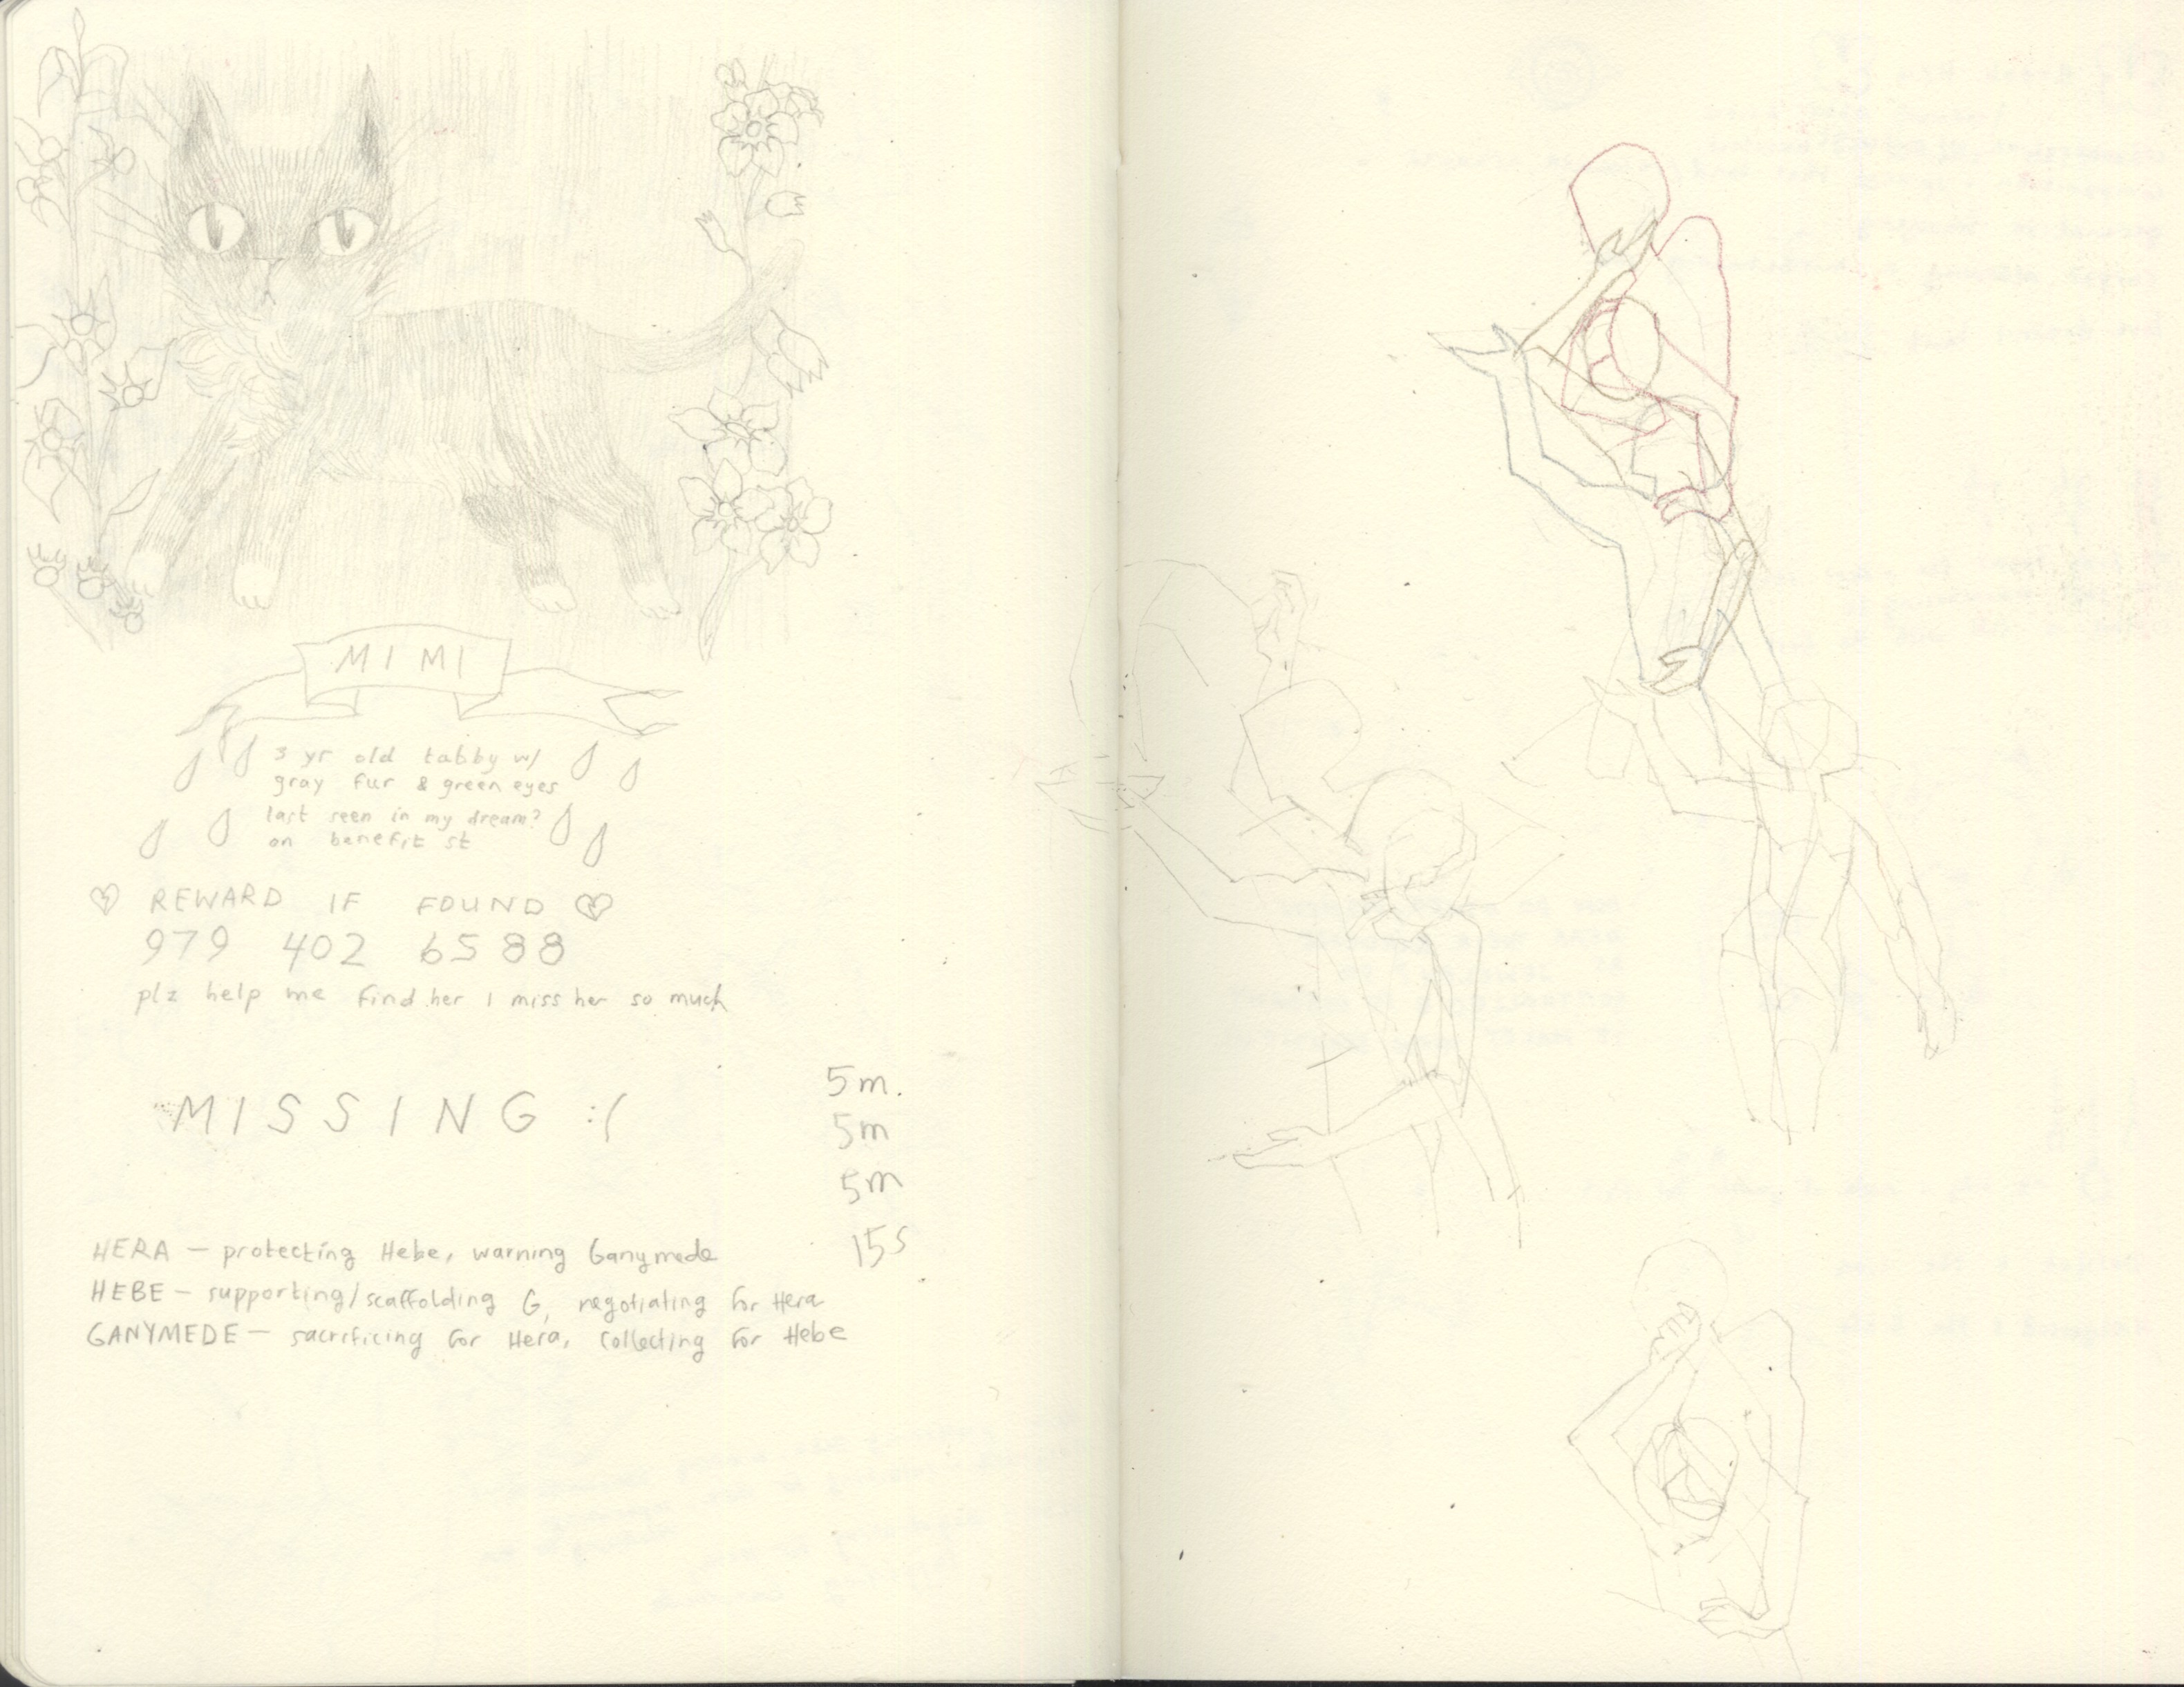 MIMI
3 yr old tabby w/
gray fur & green eyes
last seen in my dream?
on benefit st
REWARD IF FOUND
979 402 6588
plz help me find her I miss her so much
MISSING :(
5m.
5m
5m
15s
HERA — protecting Hebe, warning Ganymede
HEBE — supporting/scaffolding G, negotiating for Hera
GANYMEDE — sacrificing for Hera, collecting for Hebe